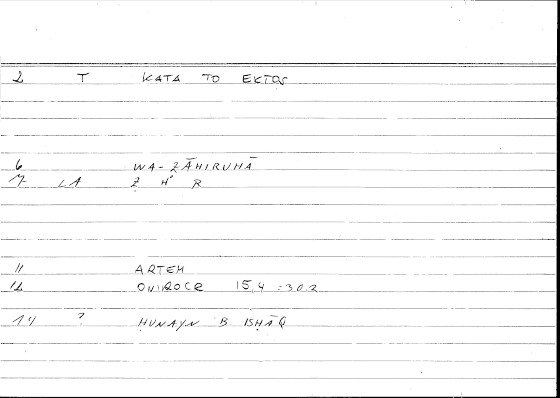 2 T KATA TO EKTOS
6 WA-ẒĀHIRUHĀ
7 LA Ẓ H R
11 ARTEM
12 ONIROCR 15,4 :30.2
14 ? ḤUNAYN B ISḤĀQ